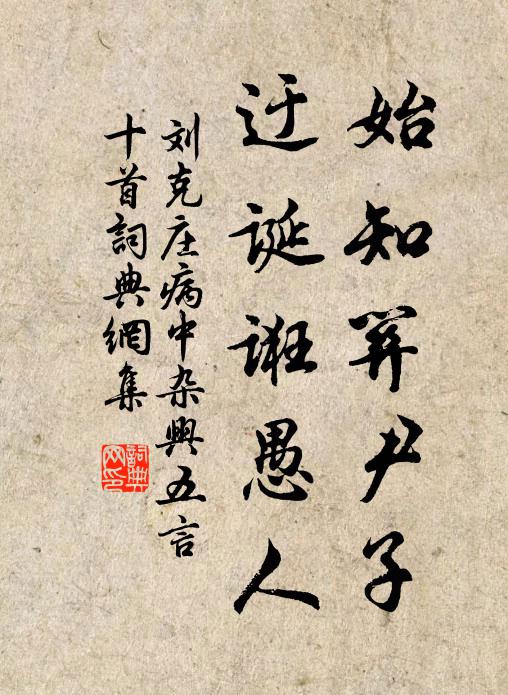 始知關尹子
迂诞诳愚人
刘克庄病中杂興五言
十首詞典網集
詞典
网印